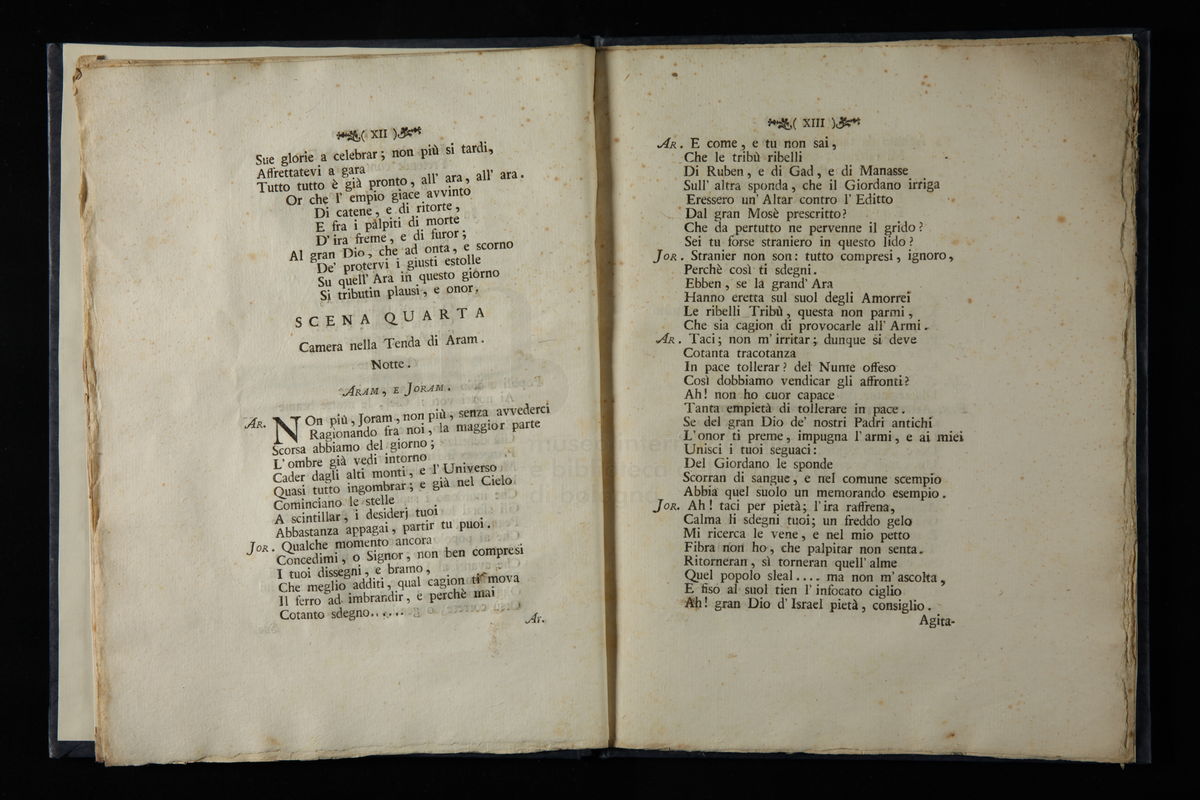 ( XII )
Sue glorie a celebrar; non più si tardi,
Affrettatevi a gara
Tutto tutto è già pronto, all' ara, all' ara.
Or che l' empio giace avvinto
Di catene, e di ritorte,
E fra i palpiti di morte
D' ira freme, e di furor;
Al gran Dio, che ad onta, e scorno
De' protervi i giusti estolle
Su quell' Ara in questo giorno
Si tributin plausi, e onor.
SCENA QUARTA
Camera nella Tenda di Aram.
Notte.
ARAM, E JORAM.
AR. NOn più, Joram, non più, senza avvederci
Ragionando fra noi, la maggior parte
Scorsa abbiamo del giorno;
L' ombre già vedi intorno
Cader dagli alti monti, e l' Universo
Quasi tutto ingombrar; e già nel Cielo
Cominciano le stelle
A scintillar, i desiderj tuoi
Abbastanza appagai, partir tu puoi.
JOR. Qualche momento ancora
Concedimi, o Signor, non ben compresi
I tuoi dissegni, e bramo,
Che meglio additi, qual cagion ti mova
Il ferro ad imbrandir, e perchè mai
Cotanto sdegno......
Ar.
( XIII )
AR. E come, e tu non sai,
Che le tribù ribelli
Di Ruben, e di Gad, e di Manasse
Sull' altra sponda, che il Giordano irriga
Eressero un' Altar contro l' Editto
Dal gran Mosè prescritto?
Che da pertutto ne pervenne il grido?
Sei tu forse straniero in questo lido?
JOR. Stranier non son: tutto compresi, ignoro,
Perchè così ti sdegni.
Ebben, se la grand' Ara
Hanno eretta sul suol degli Amorrei
Le ribelli Tribù, questa non parmi,
Che sia cagion di provocarle all' Armi.
AR. Taci; non m' irritar; dunque si deve
Cotanta tracotanza
In pace tollerar? del Nume offeso
Così dobbiamo vendicar gli affronti?
Ah! non ho cuor capace
Tanta empietà di tollerare in pace.
Se del gran Dio de' nostri Padri antichi
L' onor ti preme, impugna l' armi, e ai miei
Unisci i tuoi seguaci:
Del Giordano le sponde
Scorran di sangue, e nel comune scempio
Abbia quel suolo un memorando esempio.
JOR. Ah! taci per pietà; l' ira raffrena,
Calma li sdegni tuoi; un freddo gelo
Mi ricerca le vene, e nel mio petto
Fibra non ho, che palpitar non senta.
Ritorneran, sì torneran quell' alme
Quel popolo sleal.... ma non m' ascolta,
E fiso al suol tien l' infocato ciglio
Ah! gran Dio d' Israel pietà, consiglio.
Agita-